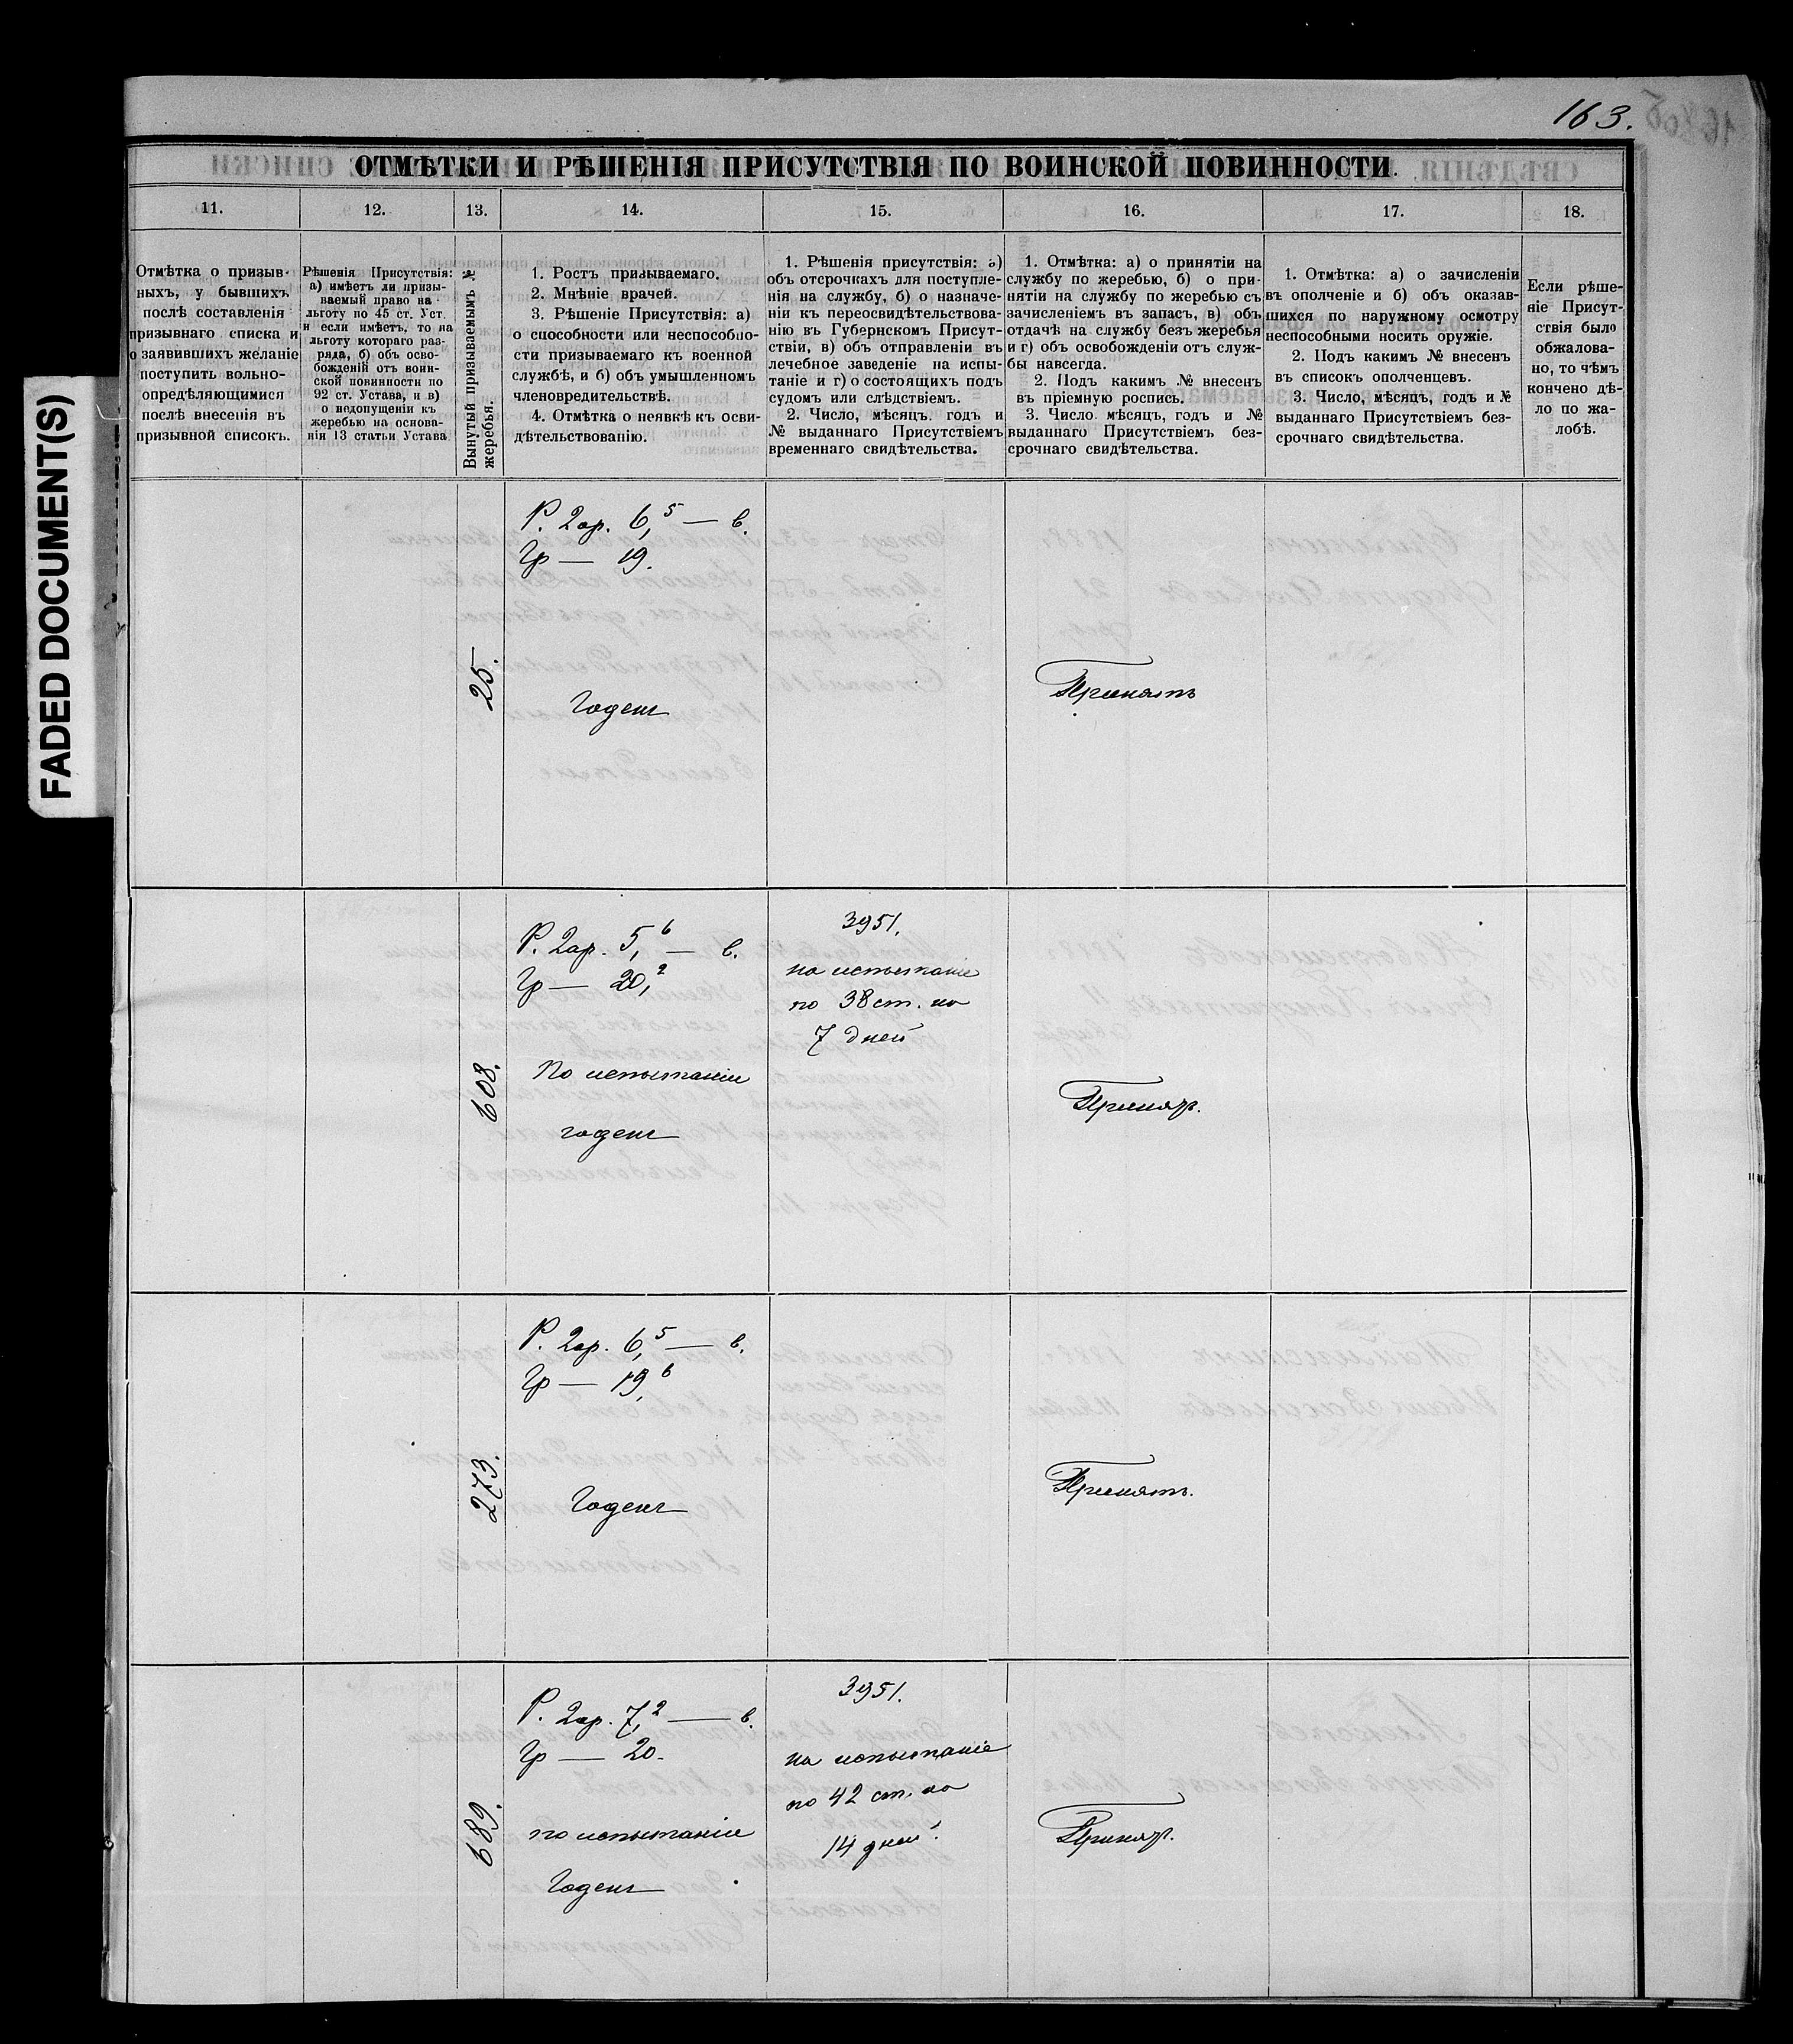 163.
FADED DOCUMENT(S)
ОТМѢТКИ И РѢШЕНІЯ ПРИСУТСТВІЯ ПО ВОИНСКОЙ ПОВИННОСТИ.
11.
12.
13.
14.
15.
16.
17.
18.
Отмѣтка о призыв-
ныхъ, у бывшихъ
послѣ составленія
призывнаго списка и
о заявившихъ желаніе
поступить вольно-
опредѣляющимися
послѣ внесенія въ
призывной списокъ.
Рѣшенія Присутствія:
а) имѣетъ ли призы-
ваемый право на
льготу по 45 ст. Уст.
и если имѣетъ, то на
льготу котораго раз-
ряда, б) объ осво-
божденій отъ воин-
ской повинности по
92 ст. Устава, и в)
о недопущеніи къ
жеребью на основа-
ніи 13 статьи Устава
Вынутый призываемымъ №
жеребья.
1. Ростъ призываемаго.
2. Мнѣніе врачей.
3. Рѣшеніе Присутствія: а)
о способности или неспособно-
сти призываемаго къ военной
службѣ, и б) объ умышленномъ
членовредительствѣ.
4. Отмѣтка о неявкѣ къ осви-
дѣтельствованію.
1. Рѣшенія присутствія: а)
объ отсрочкахъ для поступле-
нія на службу, б) о назначе-
ніи къ переосвидѣтельствова-
нію въ Губернскомъ Присут-
ствіи, в) объ отправленіи въ
лечебное заведеніе на испы-
таніе и г) о состоящихъ подъ
судомъ или слѣдствіемъ.
2. Число, мѣсяцъ, годъ и
№ выданнаго Присутствіемъ
временнаго свидѣтельства.
1. Отмѣтка: а) о принятіи на
службу по жеребью, б) о при-
нятіи на службу по жеребью съ
зачисленіемъ въ запасъ, в) объ
отдачѣ на службу безъ жеребья
и г) объ освобожденіи отъ служ-
бы навсегда.
2. Подъ какимъ № внесенъ
въ пріемную роспись.
3. Число мѣсяцъ, годъ и №
выданнаго Присутствіемъ без-
срочнаго свидѣтельства.
1. Отмѣтка: а) о зачисленіи
въ ополченіе и б) объ оказав-
шихся по наружному осмотру
неспособными носить оружіе.
2. Подъ какимъ № внесенъ
въ списокъ ополченцевъ.
3. Число, мѣсяцъ, годъ и №
выданнаго Присутствіемъ без-
срочнаго свидѣтельства.
Если рѣше-
ніе Присут-
ствія было
обжалова-
но, то чѣмъ
кончено дѣ-
ло по жа-
лобѣ.
25.
Р. 2 ар. 6,5 — в.
Гр — 19.
Годенъ
Принятъ
608.
Р. 2 ар. 5,6 — в.
Гр — 20,2
По испытаніи
годенъ
3951.
на испытаніе
по 38 ст. на
7 дней
Принят.
273.
Р. 2 ар. 6,5 — в.
Гр — 19,6
Годенъ
Принятъ.
689.
Р. 2 ар. 7,2 — в.
Гр — 20.
по испытаніи
Годенъ
3951.
на испытаніе
по 42 ст. на
14 дней.
Принят.